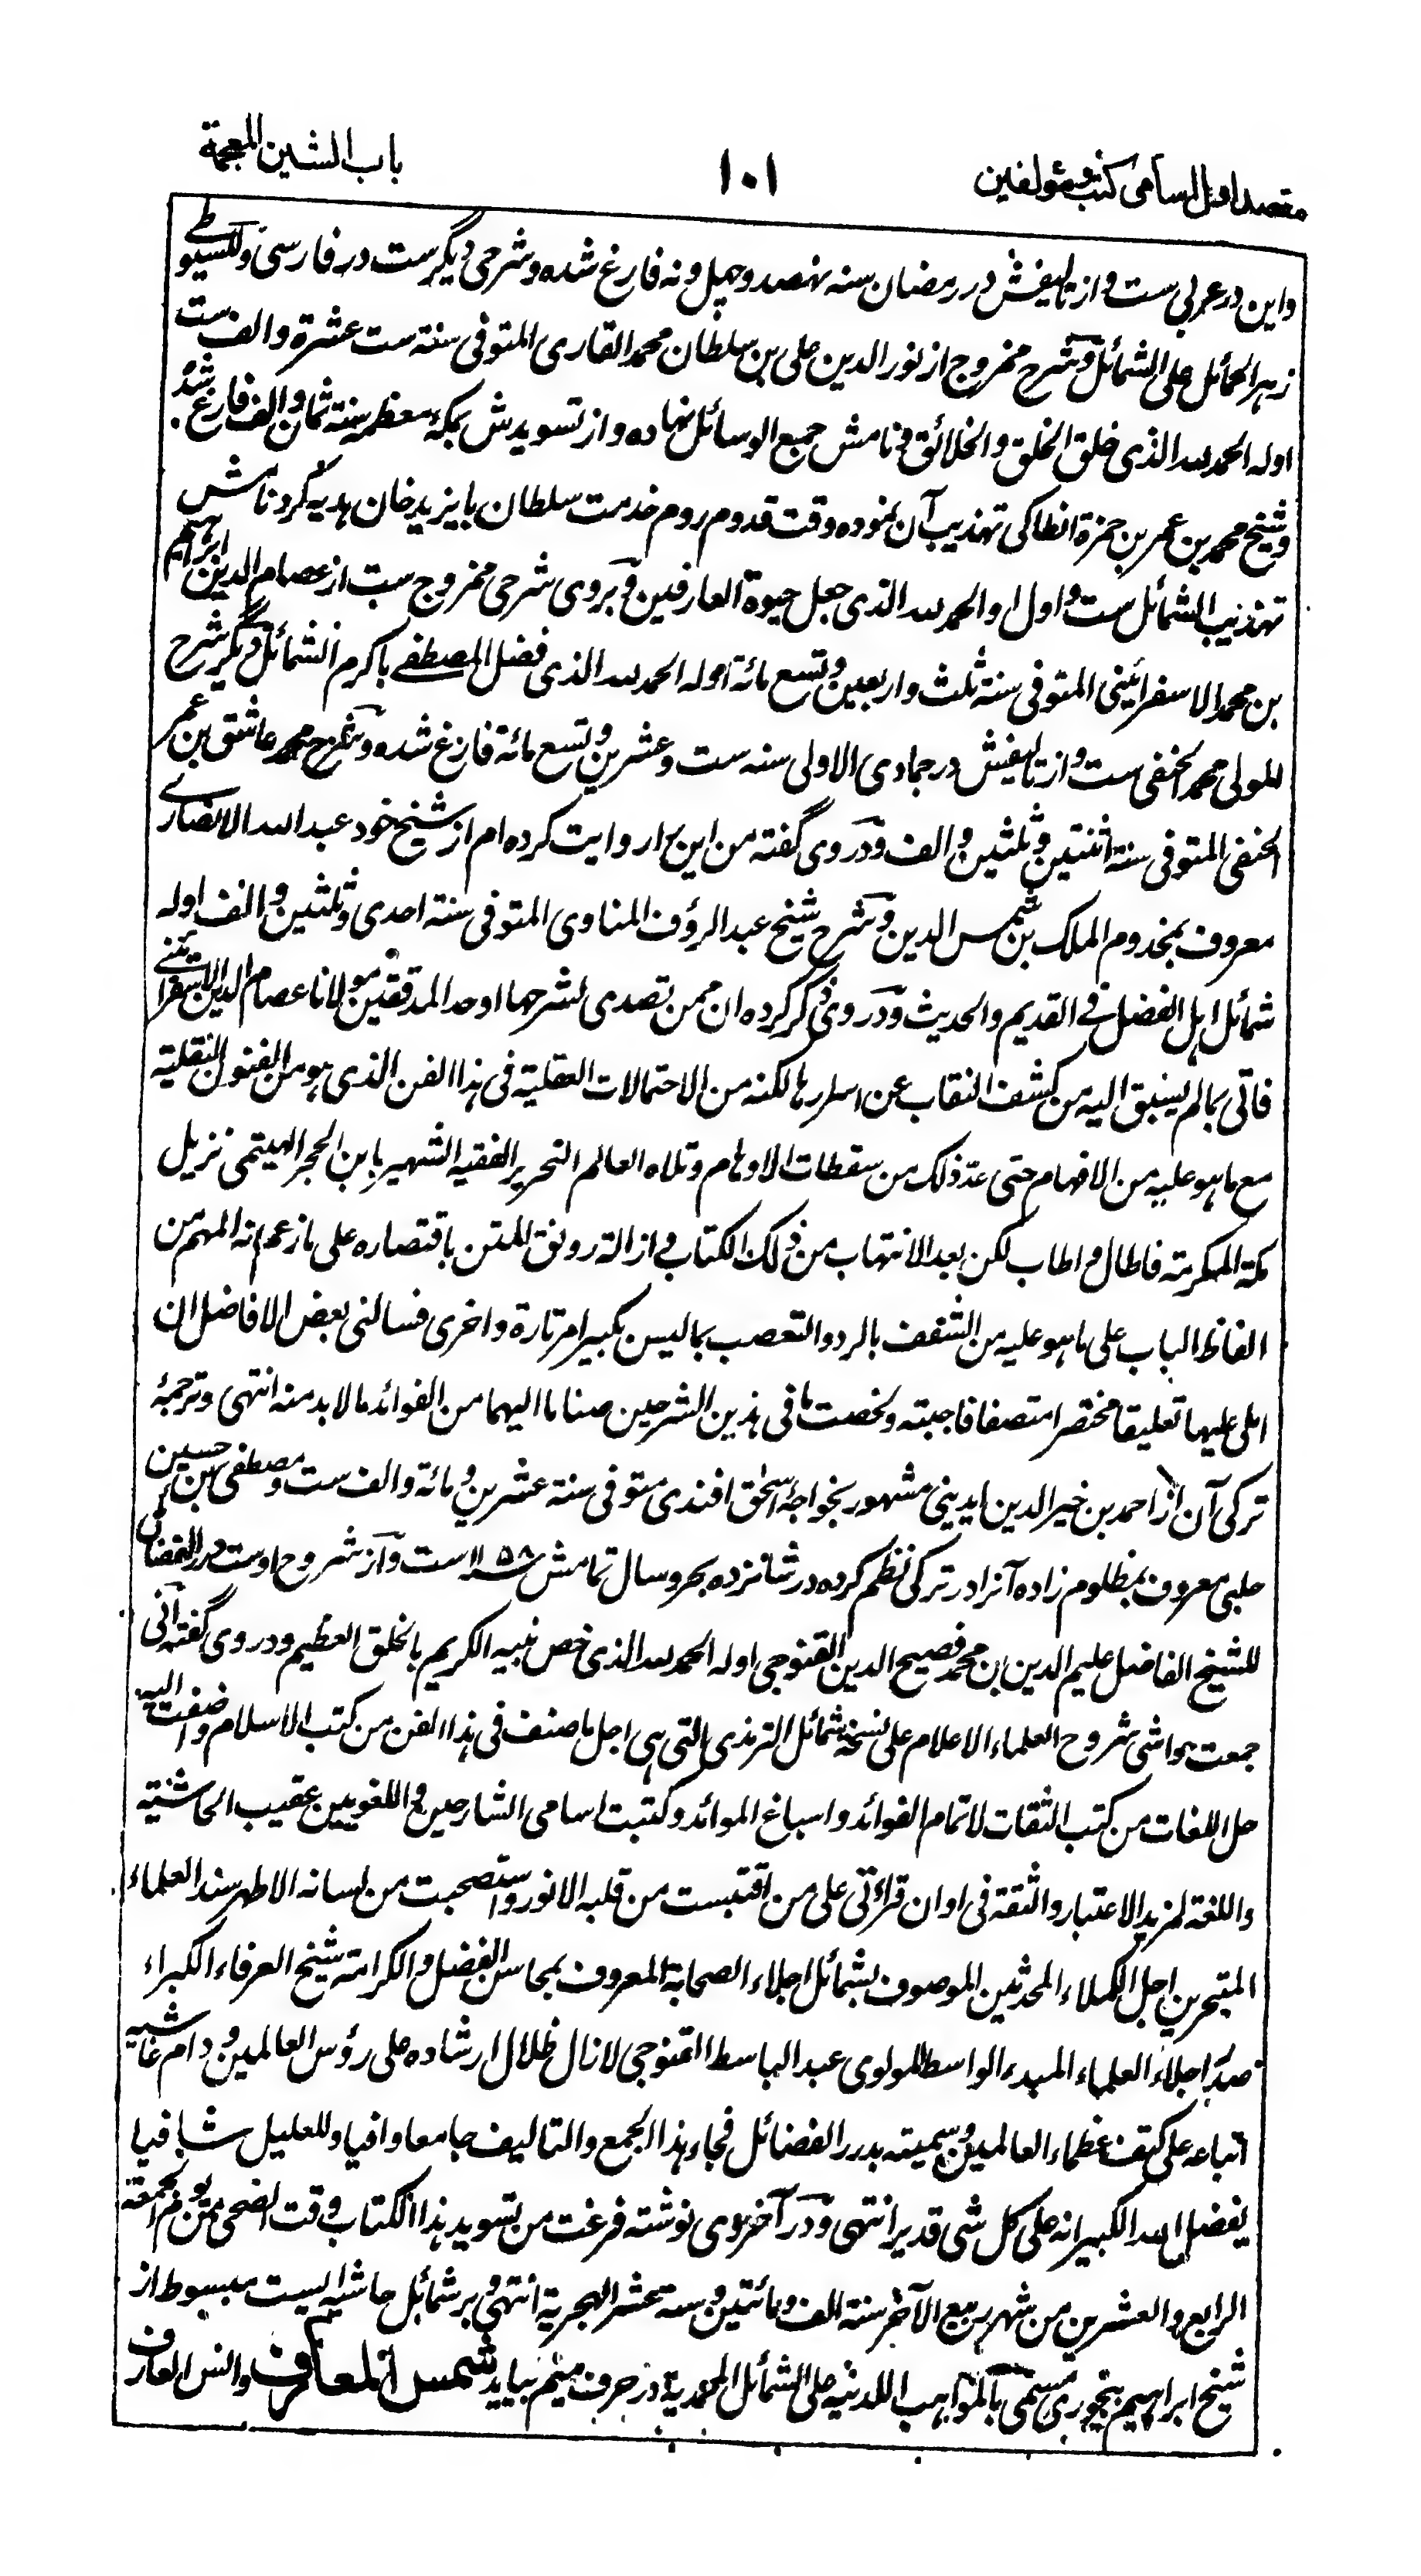 مقصد اول اسامی کتب و مؤلفین
۱۰۱
باب الشین المعجمة
واین در عربی ست و از تالیفش در رمضان سنه نهصد و چهل و نه فارغ شده و شرحی دیگرست در فارسی و للسیوطی
زهر الخمائل علی الشمائل و شرح ممزوج از نور الدین علی بن سلطان محمد القاری المتوفی سنة ست عشرة والف ست
اوله الحمد لله الذی خلق الخلق والخلائق نامش جمع الوسائل نهاده و از تسویدش بمکه معظمه سنة ثمان و الف فارغ شد
و شیخ محمد بن عمر بن حمزة انطاکی تهذیب آن نموده وقت قدوم روم خدمت سلطان بایزید خان هدیه کرد نامش
تهذیب الشمائل ست و اول او الحمد لله الذی جعل حیوة العارفین و بروی شرحی ممزوج ست از عصام الدین ابراهیم
بن محمد الاسفرائینی المتوفی سنة ثلث و اربعین و تسع مائة اوله الحمد لله الذی فضل المصطفی باکرم الشمائل دیگر شرح
للمولی محمد الحنفی ست و از تالیفش در جمادی الاولی سنه ست و عشرین و تسع مائة فارغ شده و شرح محمد عاشق بن عمر
الحنفی المتوفی سنة اثنتین و ثلثین و الف و در وی گفته من این را روایت کرده ام از شیخ خود عبد الله الانصاری
معروف بمخدوم الملک بن شمس الدین و شرح شیخ عبد الرؤف المناوی المتوفی سنة احدی و ثلثین و الف اوله
شمائل اهل الفضل فی القدیم والحدیث و در وی ذکر کرده ان ممن تصدی لشرحها اوحد المدققین مولانا عصام الدین الاسفرائنی
فاتی بما لم یسبق الیه من کشف النقاب عن اسرارها لکنه من الاحتمالات العقلیة فی هذا الفن الذی هو من الفنون النقلیة
مع ما هو علیه من الافهام حتی عد ذلک من سقطات الاوهام و تلاه العالم النحریر الفقیه الشهیر بابن الحجر الهیتمی نزیل
مکة المکرمة فاطال و اطاب لکن بعد الانتهاب من ذلک الکتاب و ازالة رونق المتن باقتصاره علی ما زعم انه المهم من
الفاظ الباب علی ما هو علیه من الشغف بالرد والتعصب بما لیس بکبیر امر تارة و اخری فسألنی بعض الافاضل ان
املی علیها تعلیقا مختصرا متصفا فاجبته ولخصت ما فی هذین الشرحین ضاما الیهما من الفوائد ما لا بد منه انتهی و ترجمهٔ
ترکی آن از احمد بن خیر الدین ایدینی مشهور بخواجه اسحق افندی متوفی سنة عشرین و مائة والف ست و مصطفی بن حسین
حلبی معروف بمظلوم زاده آنرا در ترکی نظم کرده در شانزده بحر و سال تمامش ۱۱۵۸ ست و از شروح اوست درر الفضائل
للشیخ الفاضل علیم الدین بن محمد فصیح الدین القنوجی اوله الحمد لله الذی خص نبیه الکریم بالخلق العظیم و در وی گفته انی
جمعت حواشی شروح العلماء الاعلام علی نسخة شمائل الترمذی التی هی اجل ما صنف فی هذا الفن من کتب الاسلام و اضفت الیه
حل اللغات من کتب الثقات لاتمام الفوائد و اسباغ الموائد و کتبت اسامی الشارحین و اللغویین عقیب الحاشیة
واللغة لمزید الاعتبار والثقة فی اوان قراءتی علی من اقتبست من قلبه الانور و استصحبت من لسانه الاطهر سند العلماء
المتبحرین اجل الکملاء المحدثین الموصوف بشمائل اجلاء الصحابة المعروف بمحاسن الفضل و الکرامة شیخ العرفاء الکبراء
صدر اجلاء العلماء المبدء الواسط المولوی عبد الباسط القنوجی لا زال ظلال ارشاده علی رؤس العالمین و دام غاشیة
اتباعه علی کتف عظماء العالمین و سمیته بدرر الفضائل فجاء هذا الجمع والتالیف جامعا وافیا و للعلیل شافیا
بفضل الله الکبیر انه علی کل شی قدیر انتهی و در آخر وی نوشته فرغت من تسوید هذا الکتاب وقت الضحی من یوم الجمعة
الرابع و العشرین من شهر ربیع الآخر سنة الف و مائتین و ستة عشر الهجریة انتهی و بر شمائل حاشیه ایست مبسوط از
شیخ ابراهیم بیجوری مسمی بالمواهب اللدنیه علی الشمائل المحمدیة در حرف میم بیاید شمس المعارف و انس العارف